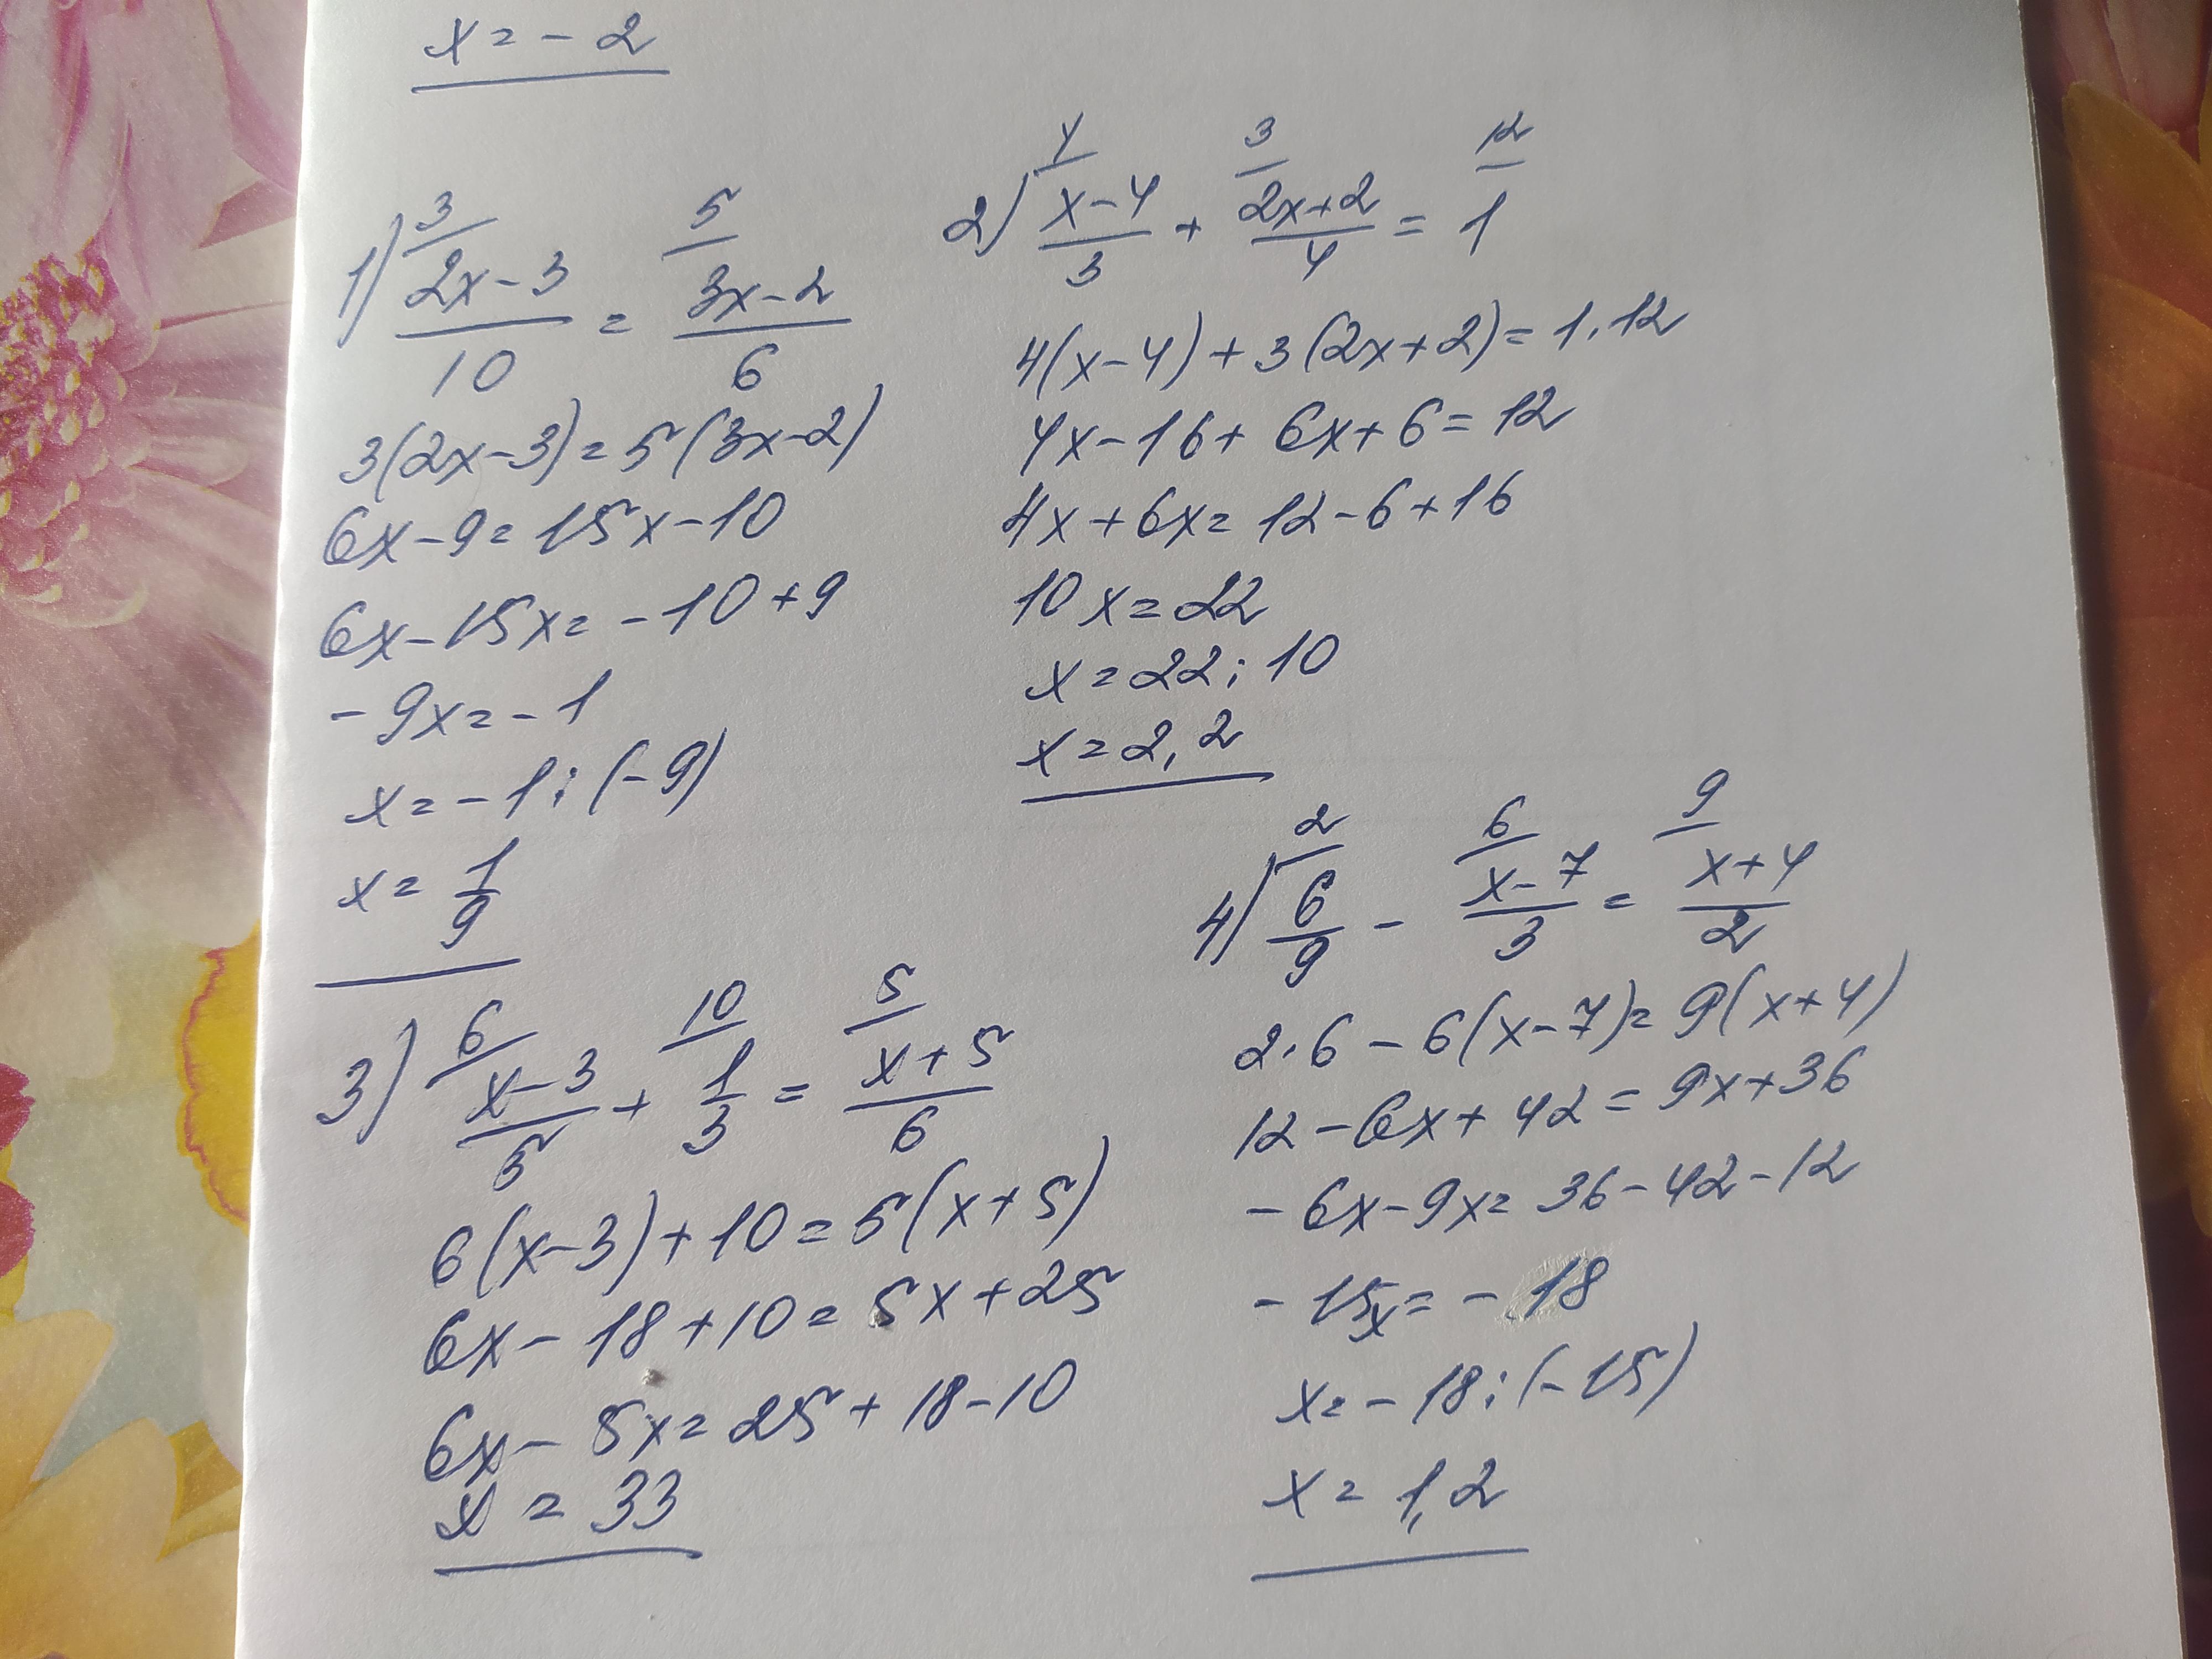 x = - 2
1) 3/ 5/
2x-3/10 = 3x-2/6
3(2x-3)=5(3x-2)
6x-9=15x-10
6x-15x=-10+9
-9x=-1
x=-1:(-9)
x=1/9
2) 4/ 3/ 12/
x-4/3 + 2x+2/4 = 1
4(x-4)+3(2x+2)=1·12
4x-16+6x+6=12
4x+6x=12-6+16
10x=22
x=22:10
x=2,2
3) 6/ 10/ 5/
x-3/5 + 1/3 = x+5/6
6(x-3)+10=5(x+5)
6x-18+10=5x+25
6x-5x=25+18-10
x=33
4) 2/ 6/ 9/
6/9 - x-7/3 = x+4/2
2·6-6(x-7)=9(x+4)
12-6x+42=9x+36
-6x-9x=36-42-12
-15x=-18
x=-18:(-15)
x=1,2